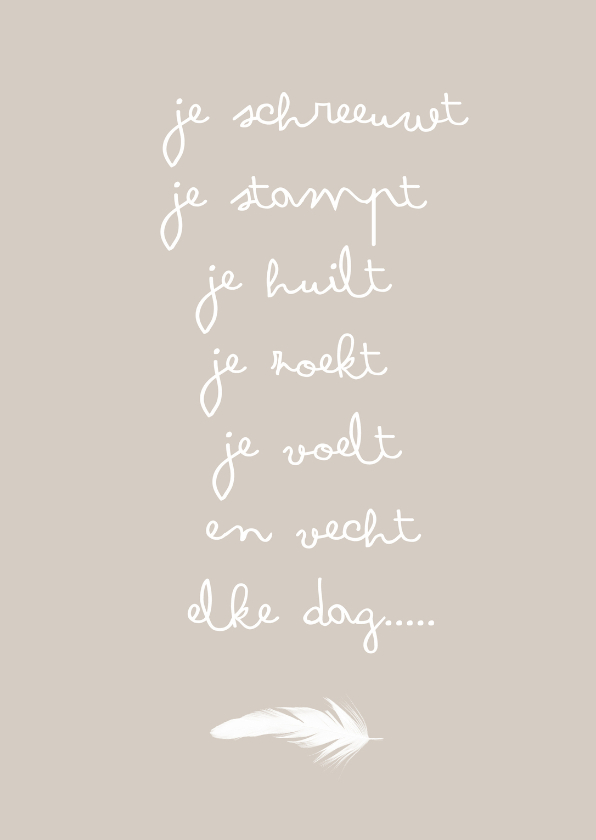 je schreeuwt
je stampt
je huilt
je zoekt
je voelt
en vecht
elke dag.....